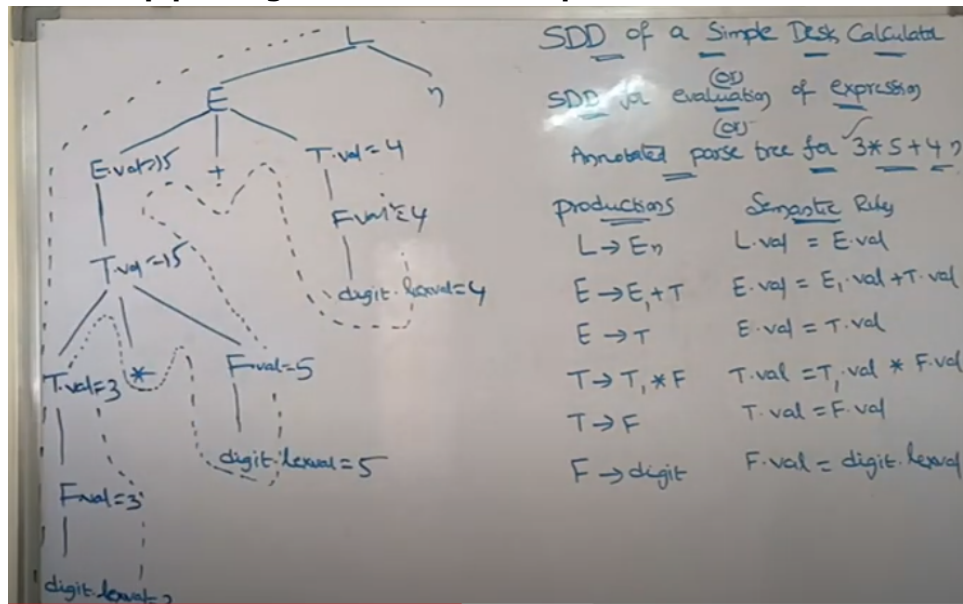 L
E
n
E.val=15
+
T.val=4
F.val=4
digit.lexval=4
T.val=15
T.val=3
*
F.val=5
digit.lexval=5
F.val=3
SDD of a Simple Desk Calculator
(or)
SDD for evaluation of expression
(or)
Annotated parse tree for 3*5+4n
productions Semantic Rules
L→En L.val = E.val
E→E₁+T E.val = E₁.val+T.val
E→T E.val = T.val
T→T₁*F T.val = T₁.val * F.val
T→F T.val = F.val
F→digit F.val = digit.lexval